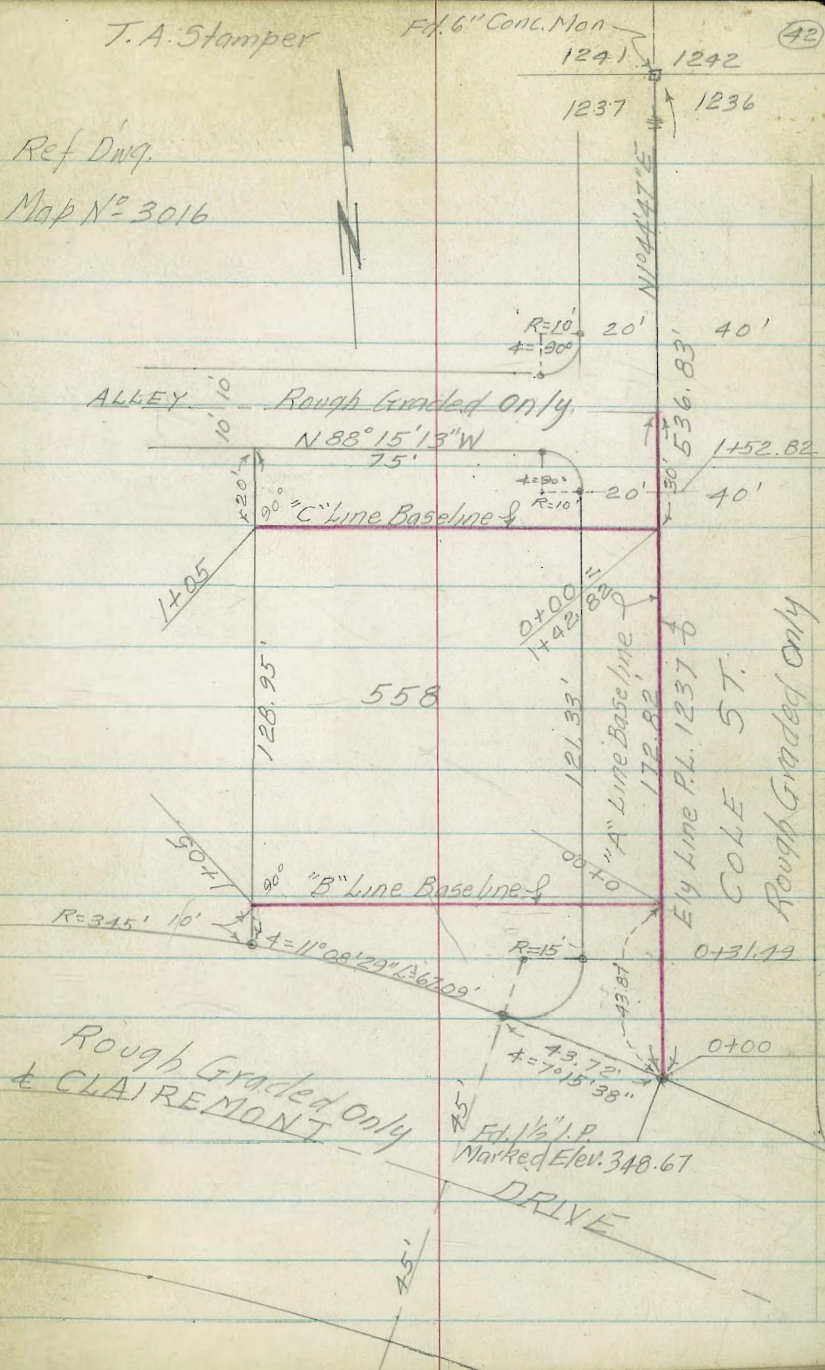 T.A. Stamper
Fd. 6" Conc. Mon
42
1241 1242
1237 1236
Ref Dwg.
Map Nº 3016
N
N1°44'47"E
R=10'
∡=90°
20' 40'
536.83'
ALLEY
10' 10'
Rough Graded Only
N 88°15'13"W
75'
1+52.82
∡=90°
R=10'
20' 40'
30'
20'
90° "C" Line Baseline
1+05
0+00
1+42.82
128.95'
558
121.33'
"A" Line Baseline
172.82'
Ely Line P.L. 1237
COLE ST.
Rough Graded Only
1+05
90°
"B" Line Baseline
0+00
R=345' 10'
∡=11°08'29" L=67.09'
R=15'
43.87'
0+31.49
0+00
43.72'
∡=7°15'38"
Rough Graded Only
℄ CLAIREMONT DRIVE
45'
Fd. 1½" I.P.
Marked Elev. 348.67
45'